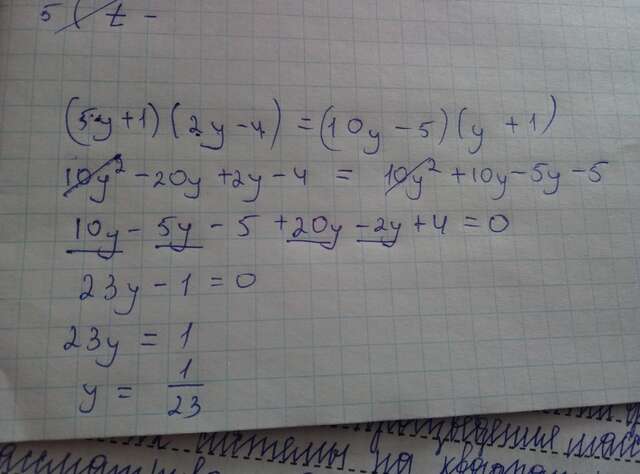 5 ( t -
(5y+1)(2y-4) = (10y-5)(y+1)
10y² - 20y + 2y - 4 = 10y² + 10y - 5y - 5
10y - 5y - 5 + 20y - 2y + 4 = 0
23y - 1 = 0
23y = 1
y = 1/23
системы на